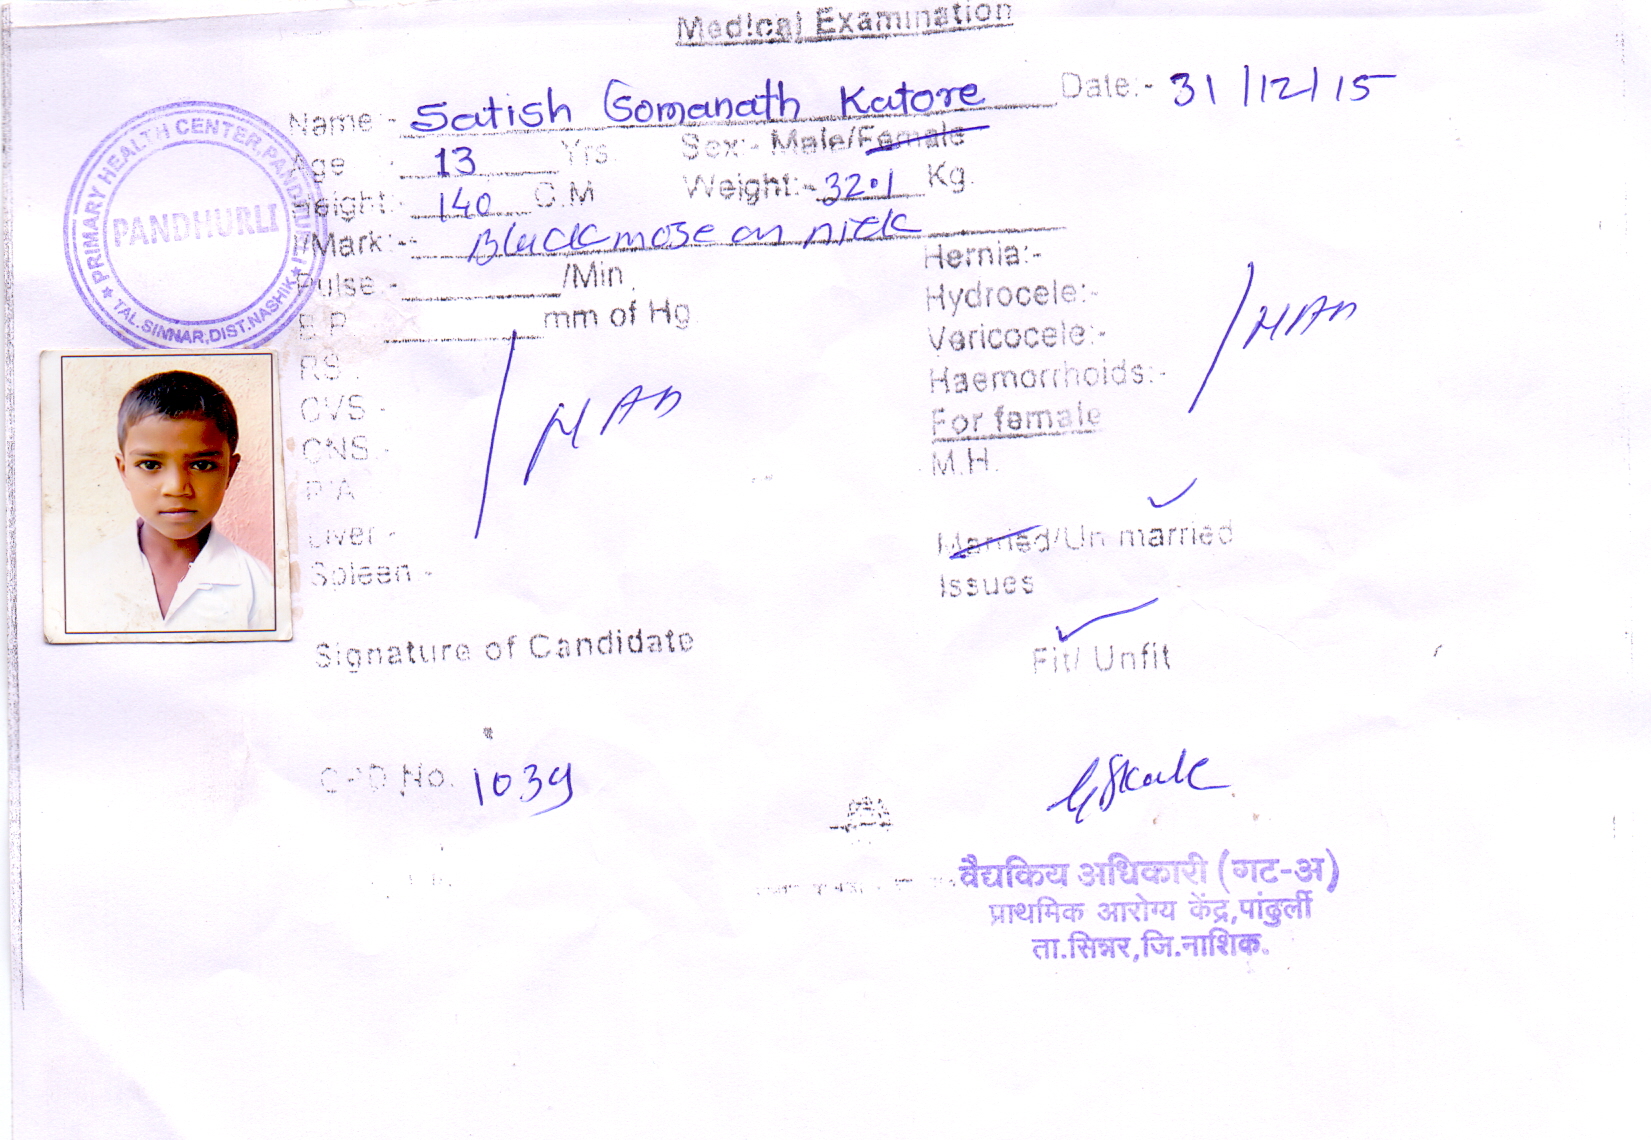 Medical Examination
Name:- Satish Gomanath Katore Date:- 31/12/15
Age :- 13 Yrs. Sex:- Male/Female
Height:- 140 C.M Weight:- 32.1 Kg.
I/Mark:- Black mose on nick
Pulse:- /Min.
B.P. mm of Hg
Hernia:-
Hydrocele:-
Varicocele:-
Haemorrhoids:-
NAD
RS :
CVS -
CNS -
P/A
Liver -
Spleen -
NAD
For female
M.H.
Married/Un married
Issues
Fit/ Unfit
Signature of Candidate
OPD No. 1039
वैद्यकिय अधिकारी (गट-अ)
प्राथमिक आरोग्य केंद्र,पांढुर्ली
ता.सिन्नर,जि.नाशिक.
PRIMARY HEALTH CENTER,PANDHURLI
PANDHURLI
TAL.SINNAR,DIST.NASHIK